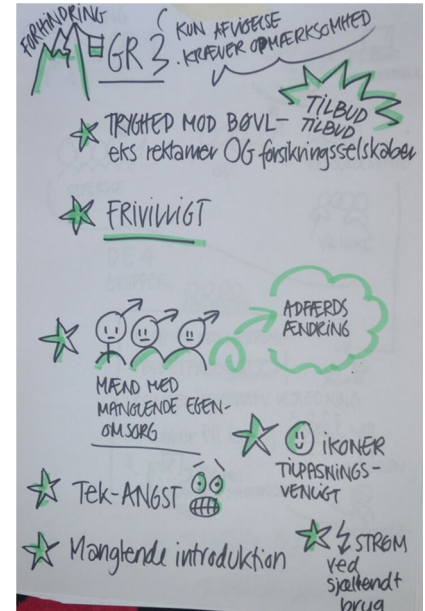 FORHINDRING
GR 3
KUN AFVIGELSE
KRÆVER OPMÆRKSOMHED
TRYGHED MOD BØVL-
TILBUD
TILBUD
eks reklamer OG forsikringsselskaber
FRIVILLIGT
ADFÆRDS
ÆNDRING
MÆND MED
MANGLENDE EGEN-
OMSORG
IKONER
TILPASNINGS-
VENLIGT
TEK-ANGST
Manglende introduktion
STRØM
ved
sjældent
brug